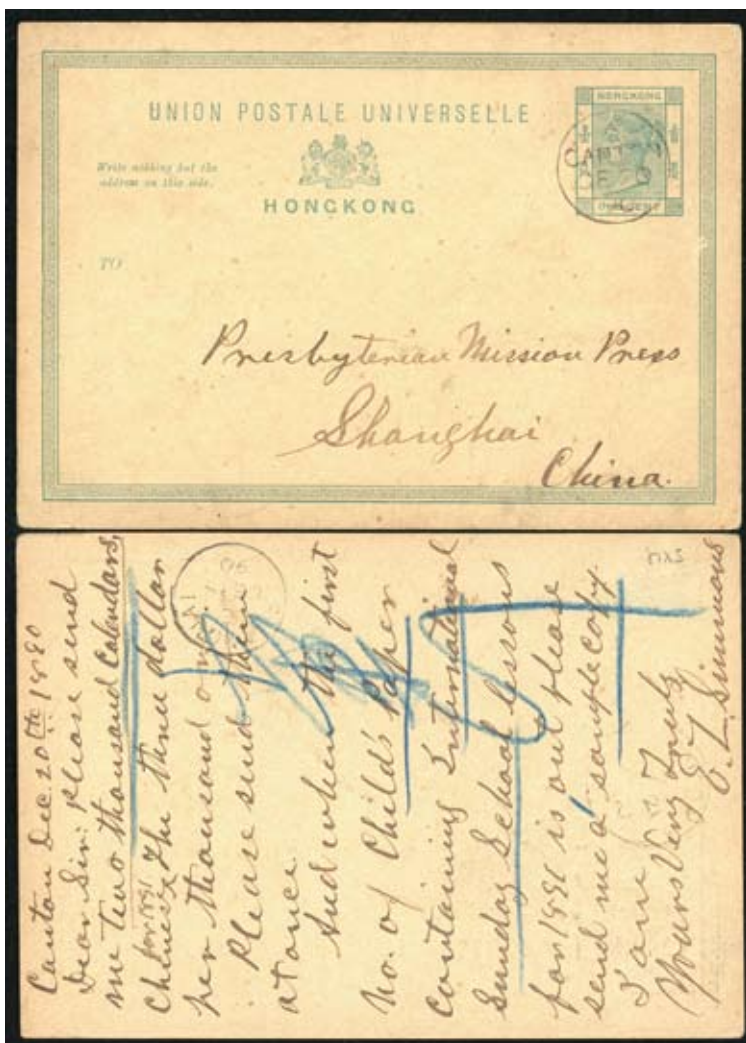 UNION POSTALE UNIVERSELLE
HONGKONG
Write nothing but the
address on this side.
HONGKONG
TO
CANTON
DE
Presbyterian Mission Press
Shanghai
China.
Canton Dec. 20th 1890
Dear Sir: Please send
me Two thousand Calendars,
for 1891
Chinese The three dollar
per thousand ones.
Please send them
at once.
And when the first
No. of Child's Paper
containing International
Sunday School lessons
for 1891 is out please
send me a sample copy.
I am
Yours Very Truly
E. Z. Simmons